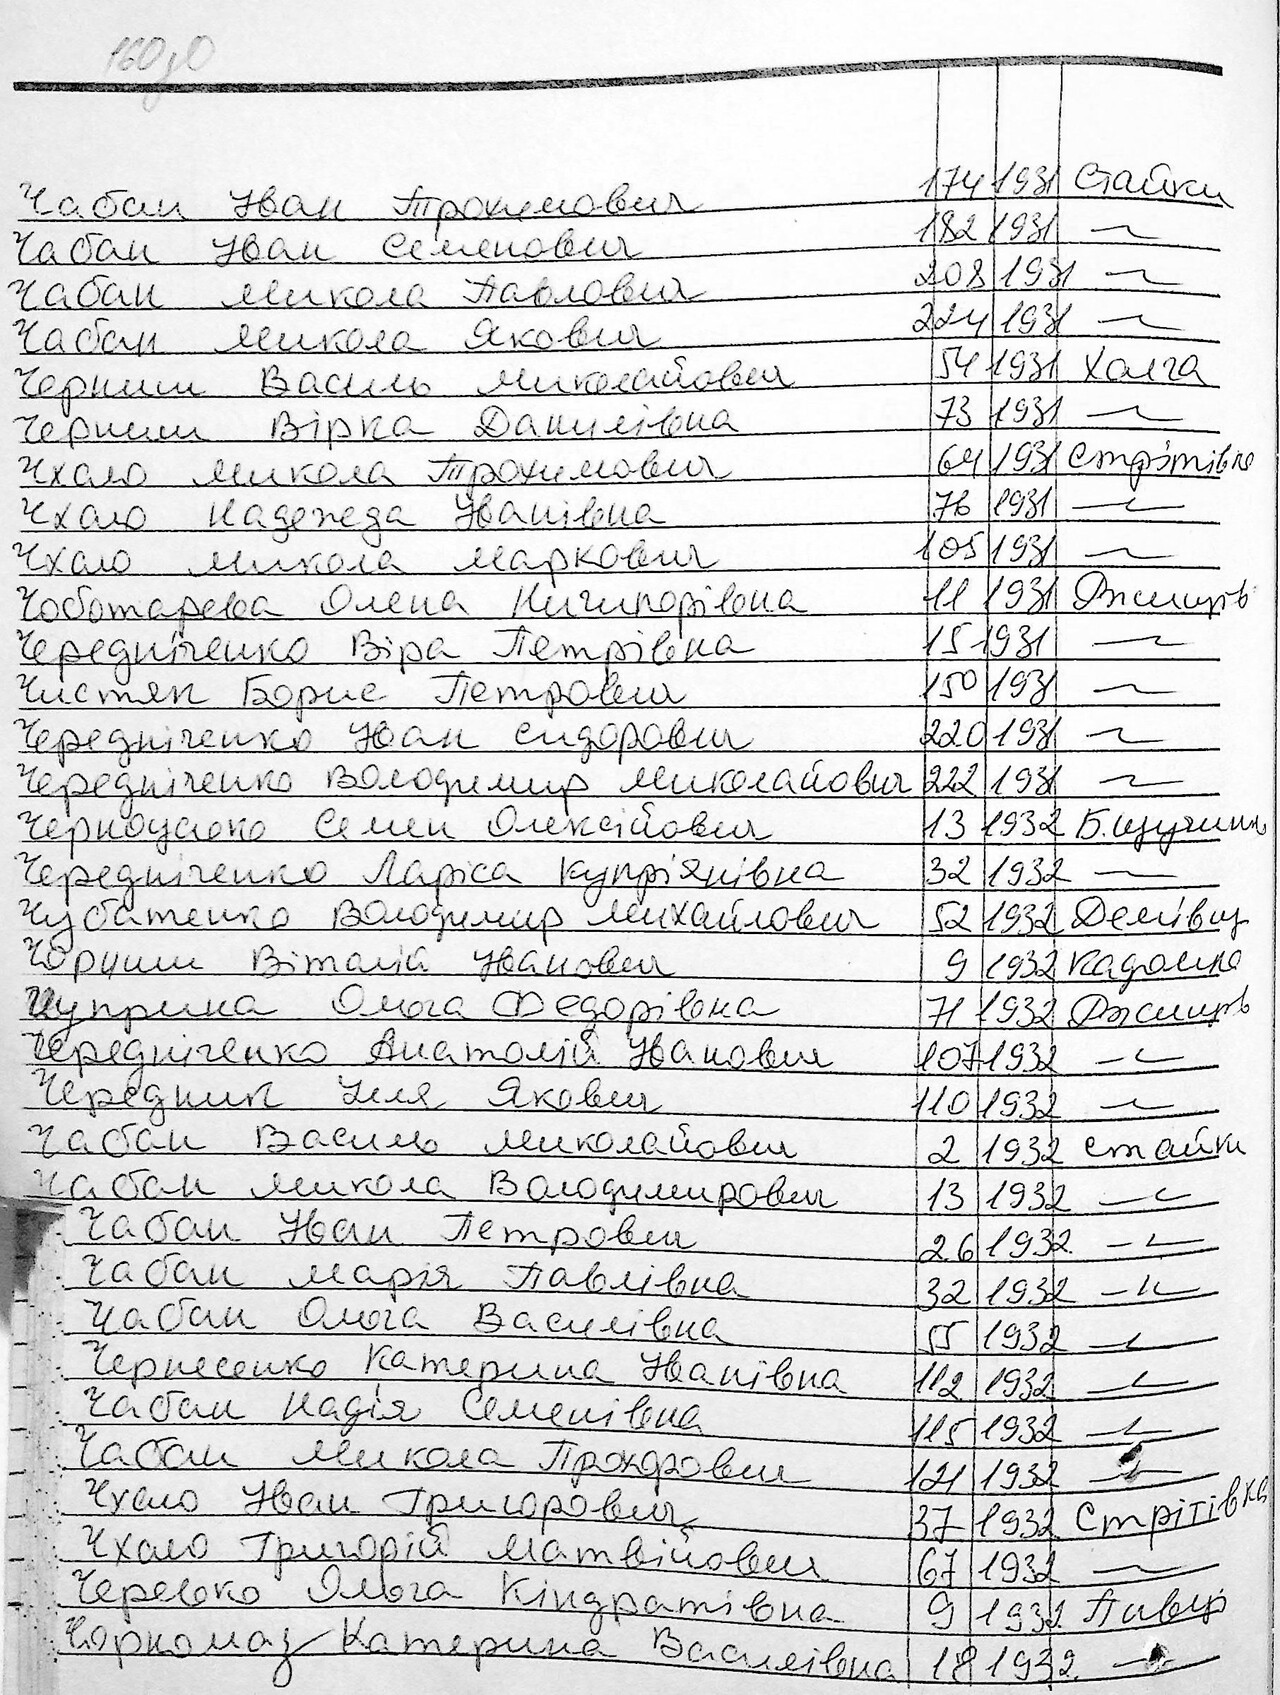 160
Чабан Іван Трохимович 174 1931 Стайки
Чабан Іван Семенович 182 1931 —〃—
Чабан Микола Павлович 208 1931 —〃—
Чабан Микола Якович 224 1931 —〃—
Черниш Василь Миколайович 54 1931 Халча
Черниш Вірка Данилівна 73 1931 —〃—
Чхало Микола Трохимович 64 1931 Стрітівка
Чхало Надежда Іванівна 76 1931 —〃—
Чхало Микола Маркович 105 1931 —〃—
Чоботарева Олена Ничипорівна 11 1931 Ржищів
Чередніченко Віра Петрівна 15 1931 —〃—
Чистяк Борис Петрович 150 1931 —〃—
Чередніченко Іван Сидорович 220 1931 —〃—
Чередніченко Володимир Миколайович 222 1931 —〃—
Семен Олексійович 13 1932 Б.щучинка
Чередніченко Ларіса Купріянівна 32 1932 —〃—
Чубатенко Володимир Михайлович 52 1932 Демівщ
Чорниш Віталій Іванович 9 1932 Кадомка
Чуприна Ольга Федорівна 71 1932 Ржищів
Чередніченко Анатолій Іванович 107 1932 —〃—
Чередник Ілля Якович 110 1932 —〃—
Чабан Василь Миколайович 2 1932 стайки
Чабан Микола Володимирович 13 1932 —〃—
Чабан Іван Петрович 26 1932 —〃—
Чабан Марія Павлівна 32 1932 —〃—
Чабан Ольга Василівна 55 1932 —〃—
Чернесенко Катерина Іванівна 112 1932 —〃—
Чабан Надія Семенівна 115 1932 —〃—
Чабан Микола Прохорович 121 1932 —〃—
Чхало Іван Григорович 37 1932 Стрітівка
Чхало Григорій Матвійович 67 1932 —〃—
Черевко Ольга Кіндратівна 9 1932 Півці
Чорномаз Катерина Василівна 18 1932 —〃—